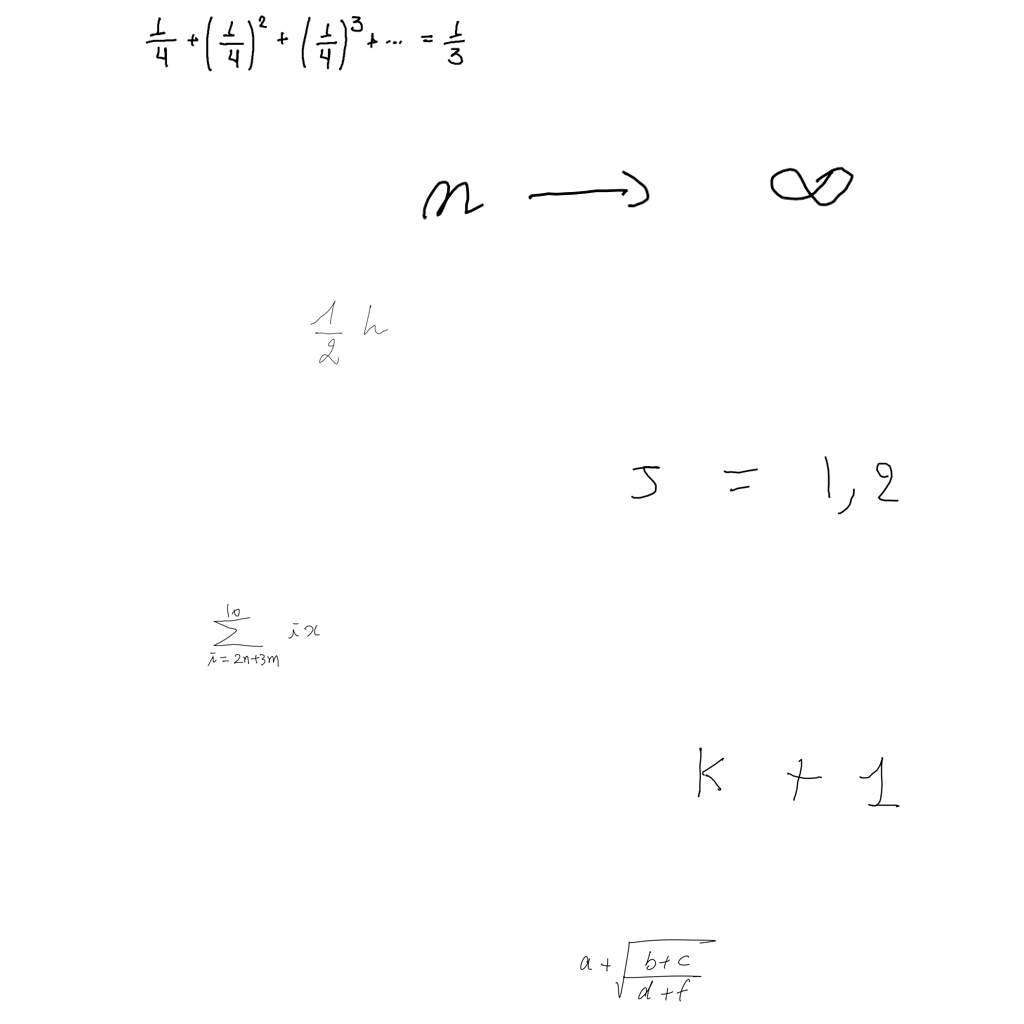 \frac{1}{4} + \left(\frac{1}{4}\right)^2 + \left(\frac{1}{4}\right)^3 + \dots = \frac{1}{3}
n \longrightarrow \infty
\frac{1}{2} h
J = 1, 2
\sum_{i=2n+3m}^{10} ix
k + 1
a + \sqrt{\frac{b+c}{d+f}}